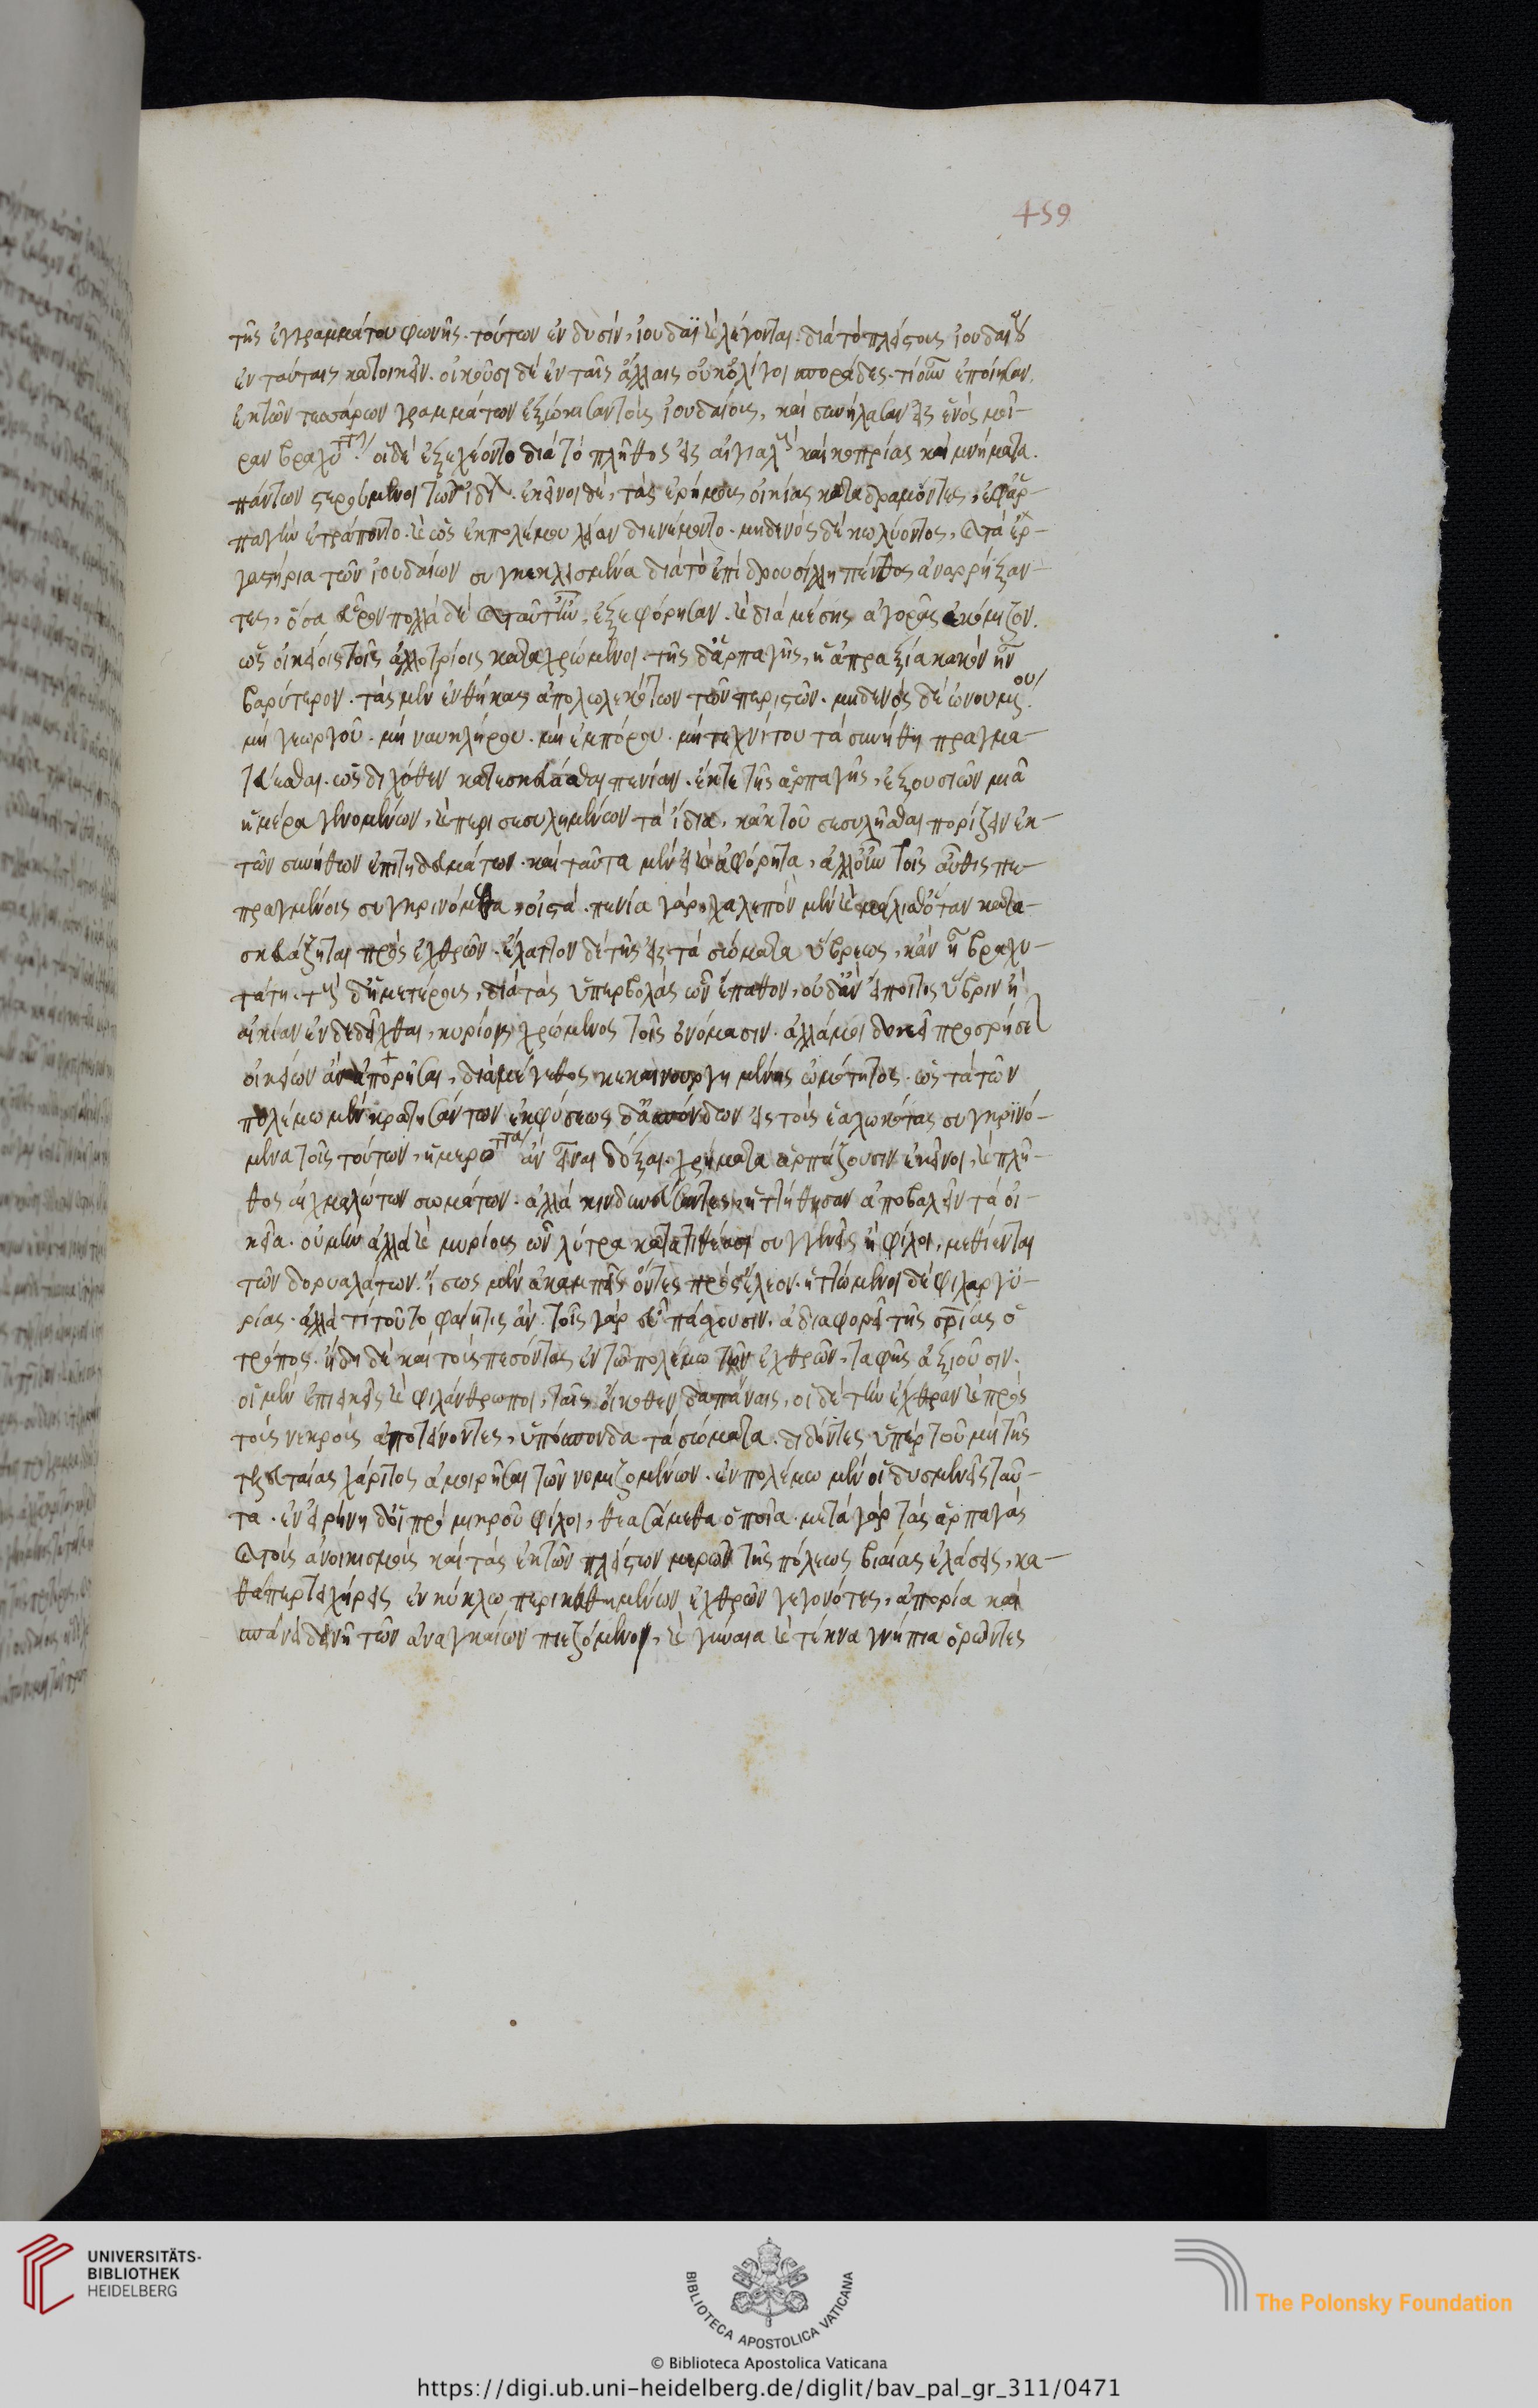 459
τῆς ἐγγραμμάτου φωνῆς. τούτων ἐν δυσὶν, ἰουδαϊκαὶ λέγονται. διὰ τὸ πλείστους ἰουδαίους
ἐν ταύταις κατοικεῖν. οἰκοῦσι δὲ ἐν ταῖς ἄλλαις οὐκ ὀλίγοι σποράδες. τί οὖν ἐποίησαν.
ἐκ τῶν τεσσάρων γραμμάτων ἐξώκισαν τοὺς ἰουδαίους, καὶ συνήλασαν εἰς ἑνὸς μοῖ-
ραν βραχυτάτην. οἱ δὲ ἐξεχέοντο διὰ τὸ πλῆθος εἰς αἰγιαλοὺς καὶ κοπρίας καὶ μνήματα.
πάντων στερόμενοι τῶν ἰδίων. ἐκεῖνοι δὲ, τὰς ἐρήμους οἰκίας καταδραμόντες, ἐφ' ἁρ-
παγὴν ἐτράποντο. καὶ ὡς ἐκ πολέμου λείαν διενέμοντο. μηδενὸς δὲ κωλύοντος, καὶ τὰ ἐρ-
γαστήρια τῶν ἰουδαίων συγκεκλεισμένα διὰ τὸ ἐπὶ δρουσίλλῃ πένθος ἀναρρήξαν-
τες, ὅσα εὗρον πολλὰ δὲ καὶ ταῦτ' ἦν, ἐξεφόρησαν. καὶ διὰ μέσης ἀγορᾶς ἐκόμιζον.
ὡς οἰκείοις τοῖς ἀλλοτρίοις καταχρώμενοι. τῆς δ' ἁρπαγῆς, ἡ ἀπραξία κακὸν ἦν
βαρύτερον. τὰς μὲν ἐνθήκας ἀπολωλεκότων τῶν ποριστῶν. μηδενὸς δὲ ἐωνουμένου
μὴ γεωργοῦ. μὴ ναυκλήρου. μὴ ἐμπόρου. μὴ τεχνίτου τὰ συνήθη πραγμα-
τεύεσθαι. ὡς διχόθεν κατεσκευάσθαι πενίαν. ἔκ τε τῆς ἁρπαγῆς, ἐξ οὐσιῶν μιᾷ
ἡμέρᾳ γενομένων, καὶ περισεσυλημένων τὰ ἴδια, κἀκ τοῦ σεσυλῆσθαι πορίζειν ἐκ
τῶν συνήθων ἐπιτηδευμάτων. καὶ ταῦτα μὲν εἰ καὶ ἀφόρητα, ἀλλ' οὖν τοῖς αὖθις πε-
πραγμένοις συγκρινόμενα, οἰστά. πενία γὰρ χαλεπὸν μὲν καὶ μάλισθ' ὅταν κατα-
σκευάζηται πρὸς ἐχθρῶν. ἔλαττον δὲ τῆς εἰς τὰ σώματα ὕβρεως, κἂν ᾖ βραχυ-
τάτη. τοὺς δ' ἡμετέρους, διὰ τὰς ὑπερβολὰς ὧν ἔπαθον, οὐδ' ἂν εἴποι τις ὕβριν ἢ
αἰκίαν ἐνδεδεῖχθαι, κυρίοις χρώμενος τοῖς ὀνόμασιν. ἀλλά μοι δοκεῖ προσρήσεων
οἰκείων ἀν ἀπορῆσαι, διὰ μέγεθος κεκαινουργημένης ὠμότητος. ὡς τὰ τῶν
πολέμῳ μὲν κρατησάντων ἐκ φύσεως δ' ἀσπόνδων εἰς τοὺς ἑαλωκότας συγκρινό-
μενα τοῖς τούτων, ἡμερώτατα ἂν εἶναι δόξαι. χρήματα ἁρπάζουσιν ἐκεῖνοι, καὶ πλῆ-
θος αἰχμαλώτων σωμάτων. ἀλλὰ κινδυνεύσαντες, εἰ ἡττήθησαν ἀποβαλεῖν τὰ οἰ-
κεῖα. οὐ μὴν ἀλλὰ καὶ μυρίους ὧν λύτρα κατατιθέασι συγγενεῖς ἢ φίλοι, μεθίενται
τῶν δορυαλώτων. ἴσως μὲν ἀκαμπεῖς ὄντες πρὸς ἔλεον. ἡττώμενοι δὲ φιλαργυ-
ρίας. ἀλλὰ τί τοῦτο φαίη τις ἄν. τοῖς γὰρ εὖ πάσχουσιν, ἀδιάφορος τῆς σωτηρίας ὁ
τρόπος. ἤδη δὲ καὶ τοὺς πεσόντας ἐν τῷ πολέμῳ τῶν ἐχθρῶν, ταφῆς ἀξιοῦσιν.
οἱ μὲν ἐπιεικεῖς καὶ φιλάνθρωποι, ταῖς οἴκοθεν δαπάναις, οἱ δὲ τὴν ἔχθραν καὶ πρὸς
τοὺς νεκροὺς ἀποτείνοντες, ὑπόσπονδα τὰ σώματα. διδόντες ὑπὲρ τοῦ μὴ τῆς
τελευταίας χάριτος ἀμοιρῆσαι τῶν νομιζομένων. ἐν πολέμῳ μὲν οἱ δυσμενεῖς ταῦ-
τα. ἐν εἰρήνῃ δ' οἱ πρὸ μικροῦ φίλοι, θεασώμεθα ὁποῖα. μετὰ γὰρ τὰς ἁρπαγὰς
καὶ τοὺς ἀνοικισμοὺς καὶ τὰς ἐκ τῶν πλείστων μερῶν τῆς πόλεως βιαίας ἐλάσεις, κα-
θάπερ τειχήρεις ἐν κύκλῳ περικαθημένων ἐχθρῶν γεγονότες, ἀπορίᾳ καὶ
σπάνει δεινῇ τῶν ἀναγκαίων πιεζόμενοι, καὶ γύναια καὶ τέκνα νήπια ὁρῶντες
UNIVERSITÄTS-
BIBLIOTHEK
HEIDELBERG
BIBLIOTECA APOSTOLICA VATICANA
The Polonsky Foundation
© Biblioteca Apostolica Vaticana
https://digi.ub.uni-heidelberg.de/diglit/bav_pal_gr_311/0471